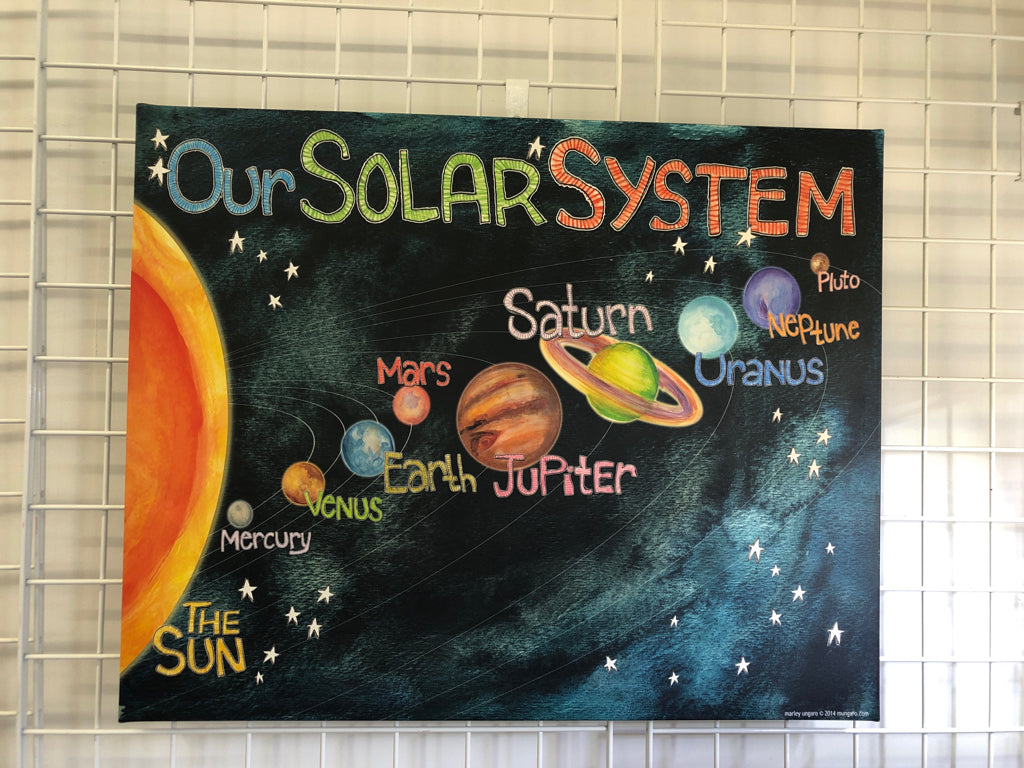 Our Solar System
Pluto
Saturn
Neptune
Uranus
Mars
Earth
Jupiter
Venus
Mercury
The
Sun
marley ungaro © 2014 mungaro.com